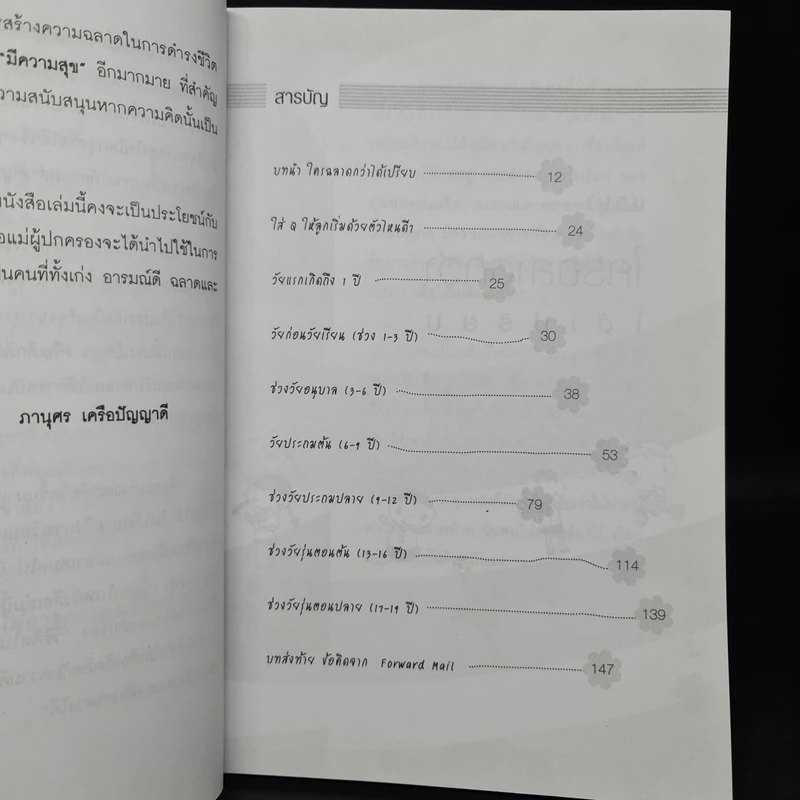 สร้างความฉลาดในการดำรงชีวิต
"มีความสุข" อีกมากมาย ที่สำคัญ
ความสนับสนุนหากความคิดนั้นเป็น
หนังสือเล่มนี้คงจะเป็นประโยชน์กับ
แม่ผู้ปกครองจะได้นำไปใช้ในการ
คนที่ทั้งเก่ง อารมณ์ดี ฉลาดและ
ภานุศร เครือปัญญาดี
สารบัญ
บทนำ ใครฉลาดกว่าได้เปรียบ 12
ใส่ Q ให้ลูกเริ่มด้วยตัวไหนดีา 24
วัยแรกเกิดถึง 1 ปี 25
วัยก่อนวัยเรียน (ช่วง 1-3 ปี) 30
ช่วงวัยอนุบาล (3-6 ปี) 38
วัยประถมต้น (6-9 ปี) 53
ช่วงวัยประถมปลาย (9-12 ปี) 79
ช่วงวัยรุ่นตอนต้น (13-16 ปี) 114
ช่วงวัยรุ่นตอนปลาย (17-19 ปี) 139
บทส่งท้าย ข้อคิดจาก Forward Mail 147